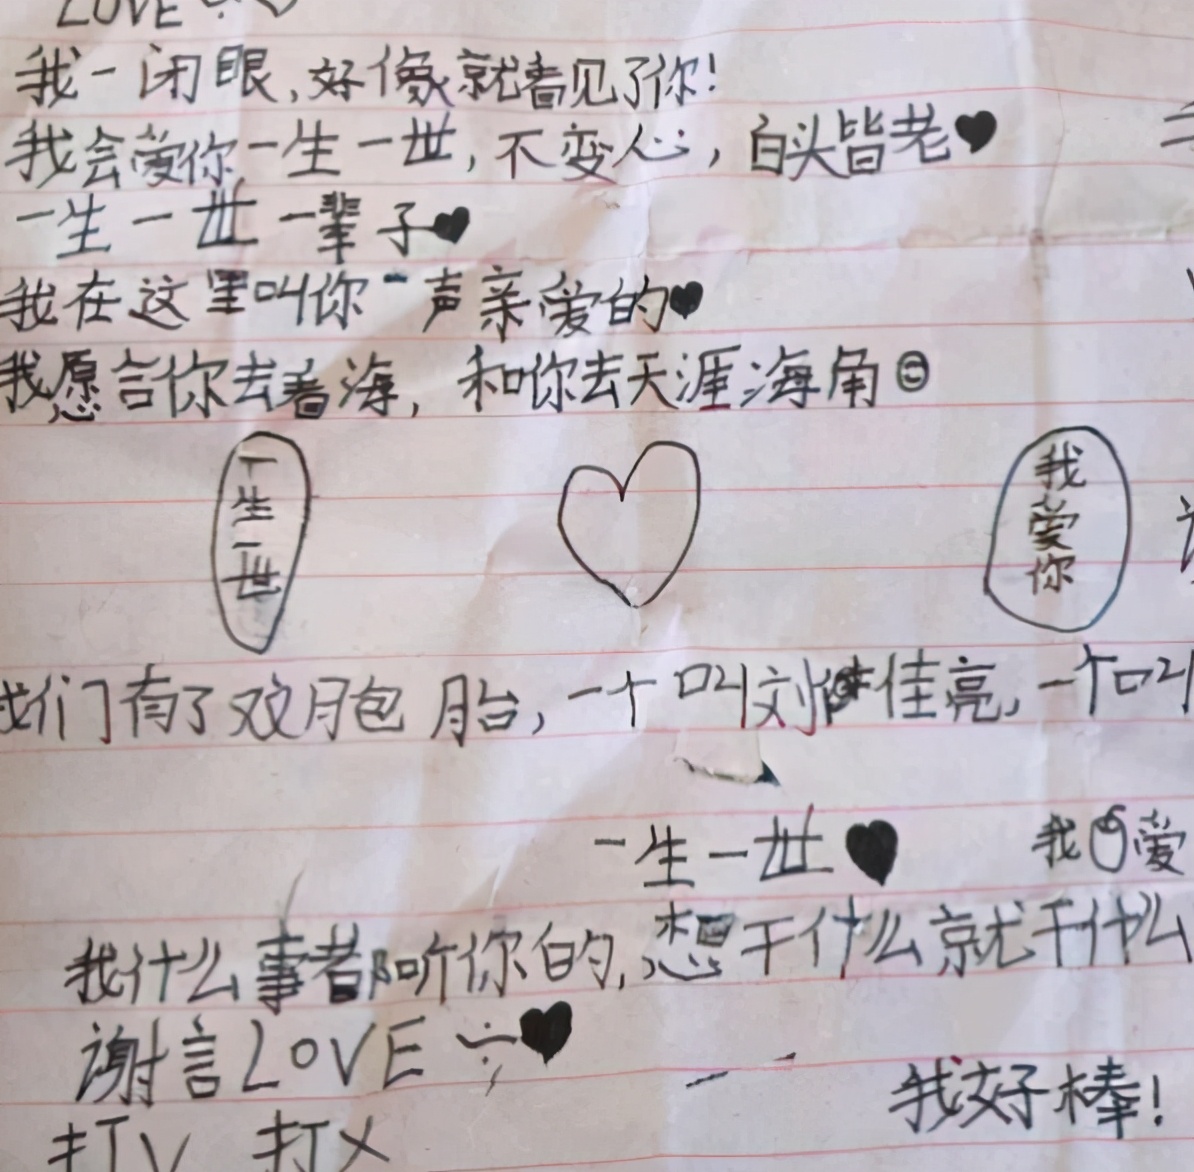 LOVE
我一闭眼,好像就看见了你!
我会爱你一生一世,不变心,白头皆老♥
一生一世一辈子♥
我在这里叫你一声亲爱的♥
我愿言你去着海,和你去天涯海角
一生一世
我爱你
我们有了双月包胎,一个叫刘佳亮,一个叫
一生一世♥
我 爱
我什么事都听你的,想干什么就干什么
谢言LOVE ♥
我好棒!
打√ 打×